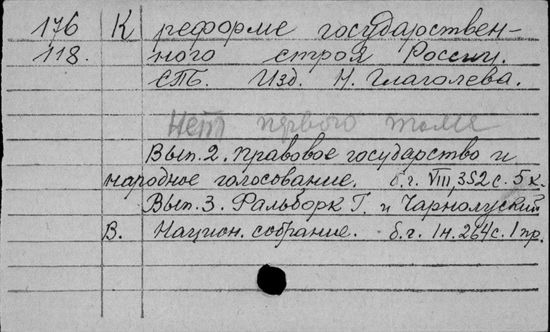 176 К реформе государствен-
118. ного строя России.
СПБ. Изд. Н. Глаголева.
Нет первого тома
Вып. 2. Правовое государство и
народное голосование. б.г. VIII, 352 с. 5 к.
Вып. 3. Фальборк Г. и Чарнолуский
В. Национ. собрание. б.г. 1н. 264 с. 1 пр.